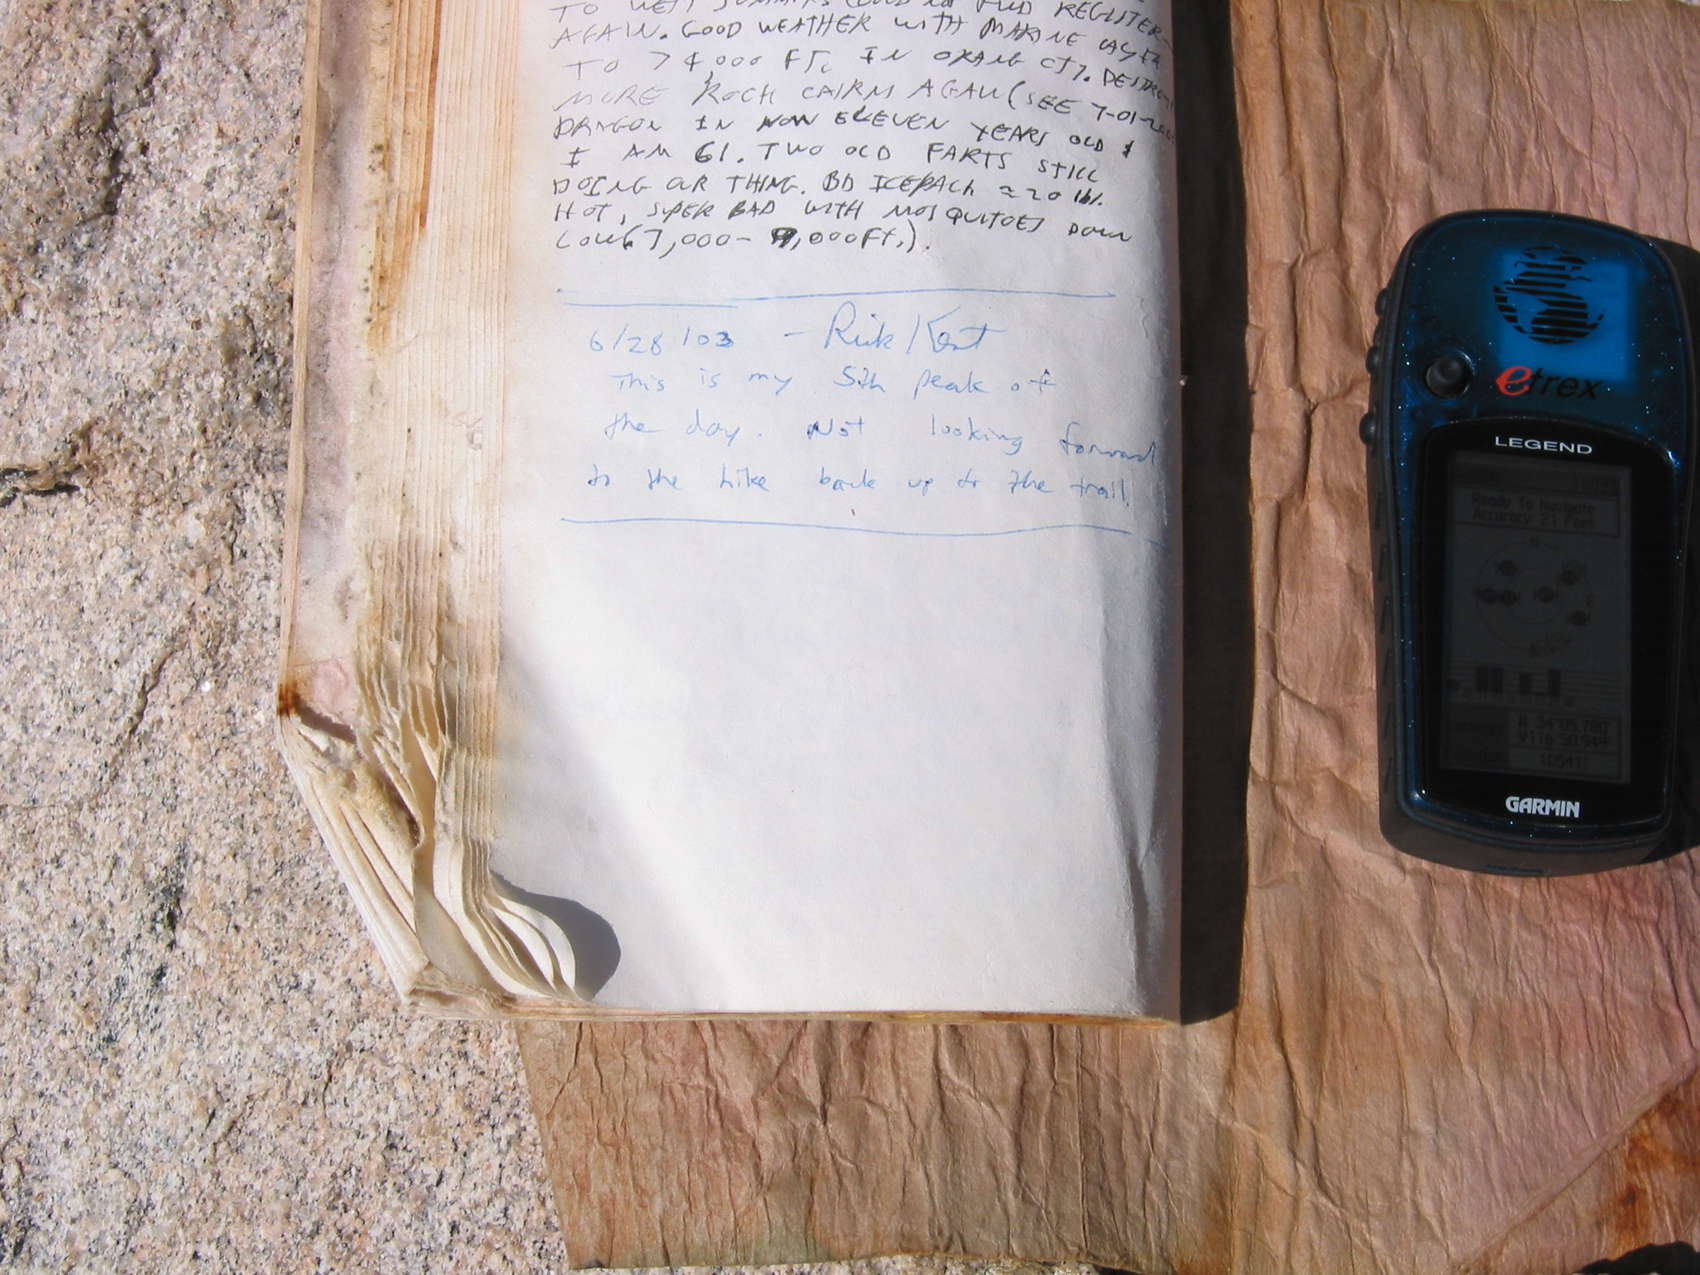 TO WEST SUMMITS COULD NOT FIND REGISTER
AGAIN. GOOD WEATHER WITH MARINE LAYER
TO >4,000 FT. IN ORANG CTY. DESTROY
MORE ROCK CAIRNS AGAIN (SEE 7-01-
DRAGON IN NOW ELEVEN YEARS OLD &
I AM 61. TWO OLD FARTS STILL
DOING OUR THING. BD ICEPACK ≈20 lb.
HOT, SUPER BAD WITH MOSQUITOES DOWN
LOW (7,000-9,000 FT.).
6/28/03 - Rick Kent
This is my 5th peak of
the day. Not looking forward
to the hike back up to the trail.
etrex
LEGEND
Ready To Navigate
Accuracy: 21 Feet
N 34°05.780'
W116°50.544'
GARMIN